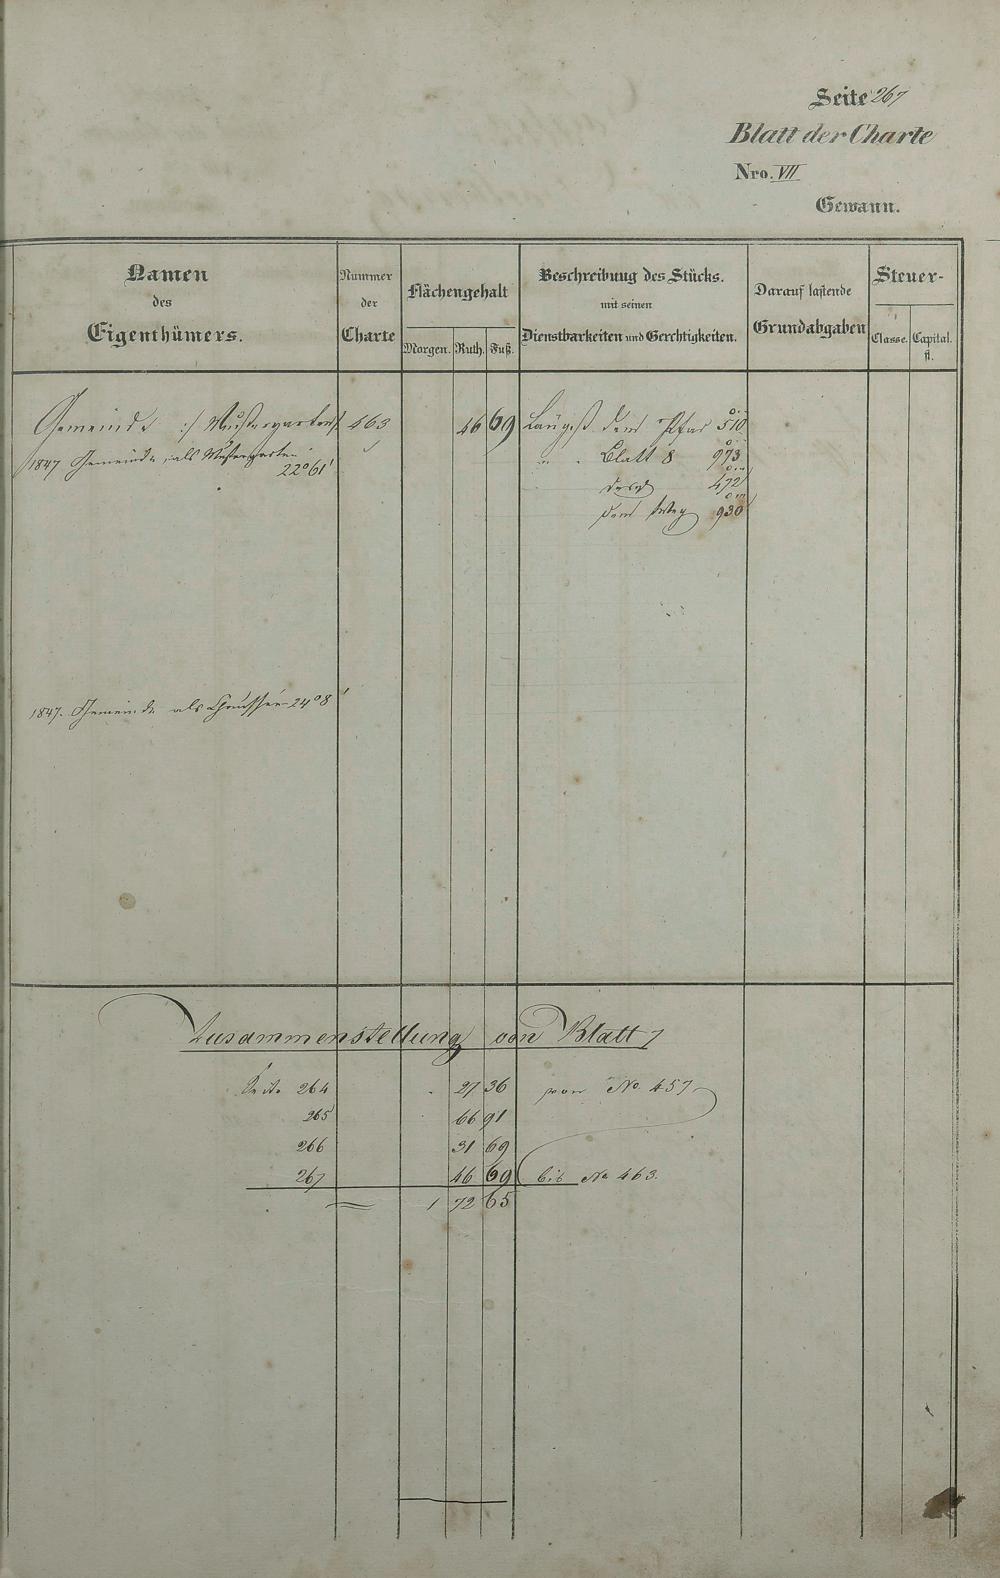 Seite 267
Blatt der Charte
Nro. VII
Gewann.
Namen des Eigenthümers.
Nummer der Charte
Flächengehalt
Morgen. Ruth. Fuß.
Beschreibung des Stücks. mit seinen Dienstbarkeiten und Gerechtigkeiten.
Darauf lastende Grundabgaben
Steuer-
Classe. Capital. fl.
Gemeinde :/ Mustergarten / 463 46 69 Längst dem Pfad 510
1847 Gemeinde, als Mustergarten " . Blatt 8 973
22° 61' 472
dem Weg 930
1847. Gemeinde als Chaussée 24° 8'
Zusammenstellung von Blatt 7
Seite 264 . 27 36 von No. 457
265 66 91
266 31 69
267 46 69 bis No 463.
1 72 65